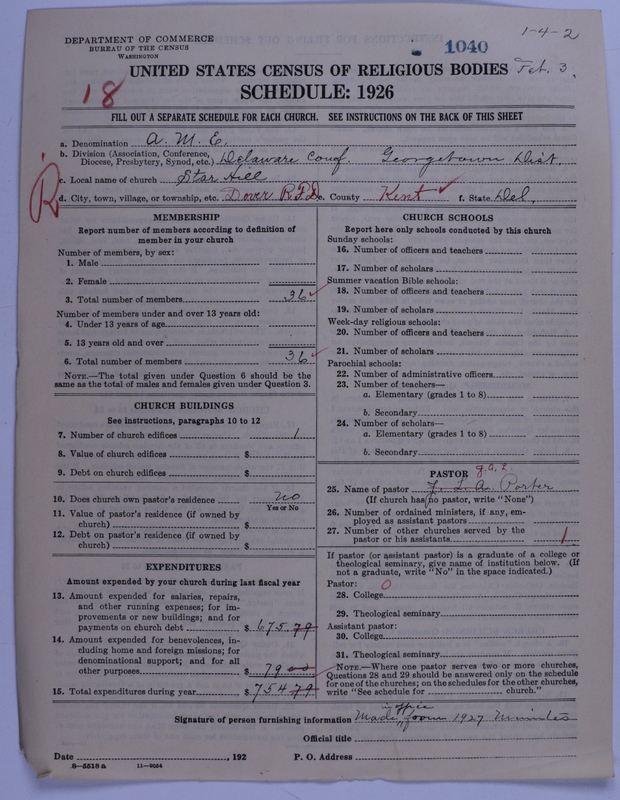 DEPARTMENT OF COMMERCE
BUREAU OF THE CENSUS
WASHINGTON
1040
1-4-2
UNITED STATES CENSUS OF RELIGIOUS BODIES Feb. 3.
18
SCHEDULE: 1926
FILL OUT A SEPARATE SCHEDULE FOR EACH CHURCH. SEE INSTRUCTIONS ON THE BACK OF THIS SHEET
a. Denomination A. M. E.
b. Division (Association, Conference, Diocese, Presbytery, Synod, etc.) Delaware Conf. Georgetown Dist.
c. Local name of church Star Hill
R
d. City, town, village, or township, etc. Dover R.F.D. e. County Kent f. State Del.
MEMBERSHIP
Report number of members according to definition of
member in your church
Number of members, by sex:
1. Male
2. Female
3. Total number of members 36
Number of members under and over 13 years old:
4. Under 13 years of age
5. 13 years old and over
6. Total number of members 36
NOTE.—The total given under Question 6 should be
same as the total of males and females given under Question 3.
CHURCH BUILDINGS
See instructions, paragraphs 10 to 12
7. Number of church edifices 1
8. Value of church edifices $
9. Debt on church edifices $
10. Does church own pastor's residence no
Yes or No
11. Value of pastor's residence (if owned by
church) $
12. Debt on pastor's residence (if owned by
church) $
EXPENDITURES
Amount expended by your church during last fiscal year
13. Amount expended for salaries, repairs,
and other running expenses; for im-
provements or new buildings; and for
payments on church debt $ 675.79
14. Amount expended for benevolences, in-
cluding home and foreign missions; for
denominational support; and for all
other purposes $ 79 00
15. Total expenditures during year $ 754 79
CHURCH SCHOOLS
Report here only schools conducted by this church
Sunday schools:
16. Number of officers and teachers
17. Number of scholars
Summer vacation Bible schools:
18. Number of officers and teachers
19. Number of scholars
Week-day religious schools:
20. Number of officers and teachers
21. Number of scholars
Parochial schools:
22. Number of administrative officers
23. Number of teachers—
a. Elementary (grades 1 to 8)
b. Secondary
24. Number of scholars—
a. Elementary (grades 1 to 8)
b. Secondary
PASTOR
25. Name of pastor J. L. A. Porter
(If church has no pastor, write "None")
26. Number of ordained ministers, if any, em-
ployed as assistant pastors
27. Number of other churches served by the
pastor or his assistants 1
If pastor (or assistant pastor) is a graduate of a college or
theological seminary, give name of institution below. (If
not a graduate, write "No" in the space indicated.)
Pastor: 0
28. College
29. Theological seminary
Assistant pastor:
30. College
31. Theological seminary
NOTE.—Where one pastor serves two or more churches,
Questions 28 and 29 should be answered only on the schedule
for one of the churches; on the schedules for the other churches,
write "See schedule for church."
office
Signature of person furnishing information Made from 1927 Minutes
Official title
Date , 192 P. O. Address
8—5518 a 11—9054